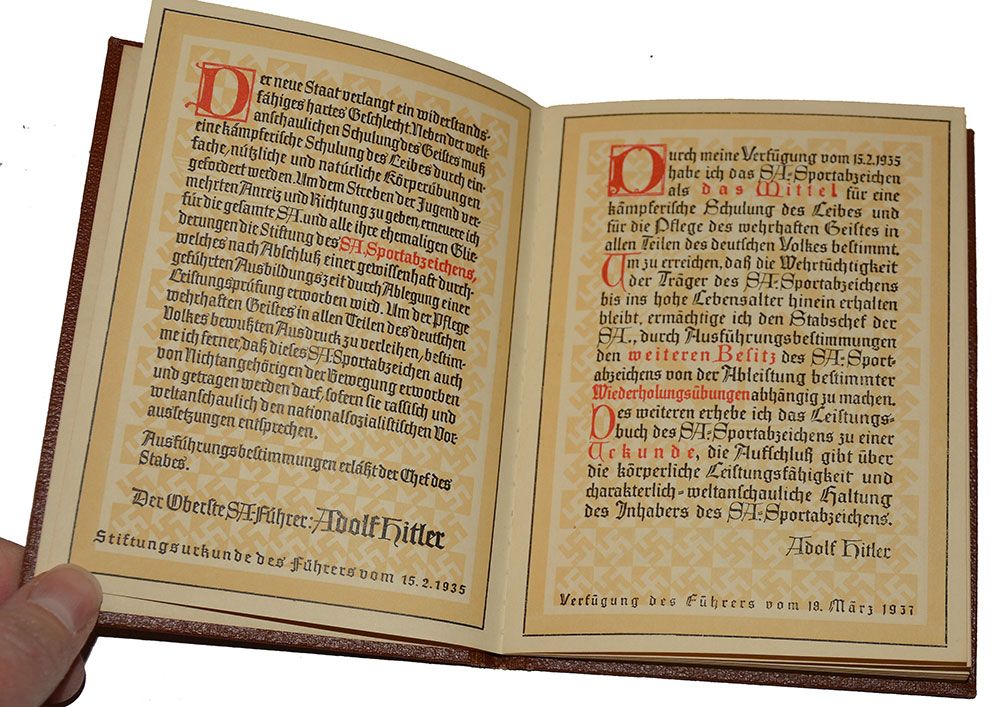 Der neue Staat verlangt ein widerstands-
fähiges hartes Geschlecht. Neben der welt-
anschaulichen Schulung des Geistes muß
eine kämpferische Schulung des Leibes durch ein-
fache, nützliche und natürliche Körperübungen
gefordert werden. Um dem Streben der Jugend ver-
mehrten Anreiz und Richtung zu geben, erneuere ich
für die gesamte SA. und alle ihre ehemaligen Glie-
derungen die Stiftung des SA.Sportabzeichens,
welches nach Abschluß einer gewissenhaft durch-
geführten Ausbildungszeit durch Ablegung einer
Leistungsprüfung erworben wird. Um der Pflege
wehrhaften Geistes in allen Teilen des deutschen
Volkes bewußten Ausdruck zu verleihen, bestim-
me ich ferner, daß dieses SA:Sportabzeichen auch
von Nichtangehörigen der Bewegung erworben
und getragen werden darf, sofern sie rassisch und
weltanschaulich den nationalsozialistischen Vor-
aussetzungen entsprechen.
Ausführungsbestimmungen erläßt der Chef des
Stabes.
Der Oberste SA-Führer: Adolf Hitler
Stiftungsurkunde des Führers vom 15.2.1935
Durch meine Verfügung vom 15.2.1935
habe ich das SA-Sportabzeichen
als das Mittel für eine
kämpferische Schulung des Leibes und
für die Pflege des wehrhaften Geistes in
allen Teilen des deutschen Volkes bestimmt.
Um zu erreichen, daß die Wehrtüchtigkeit
der Träger des SA-Sportabzeichens
bis ins hohe Lebensalter hinein erhalten
bleibt, ermächtige ich den Stabschef der
SA., durch Ausführungsbestimmungen
den weiteren Besitz des SA-Sport-
abzeichens von der Ableistung bestimmter
Wiederholungsübungen abhängig zu machen.
Des weiteren erhebe ich das Leistungs-
buch des SA-Sportabzeichens zu einer
Urkunde, die Aufschluß gibt über
die körperliche Leistungsfähigkeit und
charakterlich-weltanschauliche Haltung
des Inhabers des SA-Sportabzeichens.
Adolf Hitler
Verfügung des Führers vom 18. März 1937